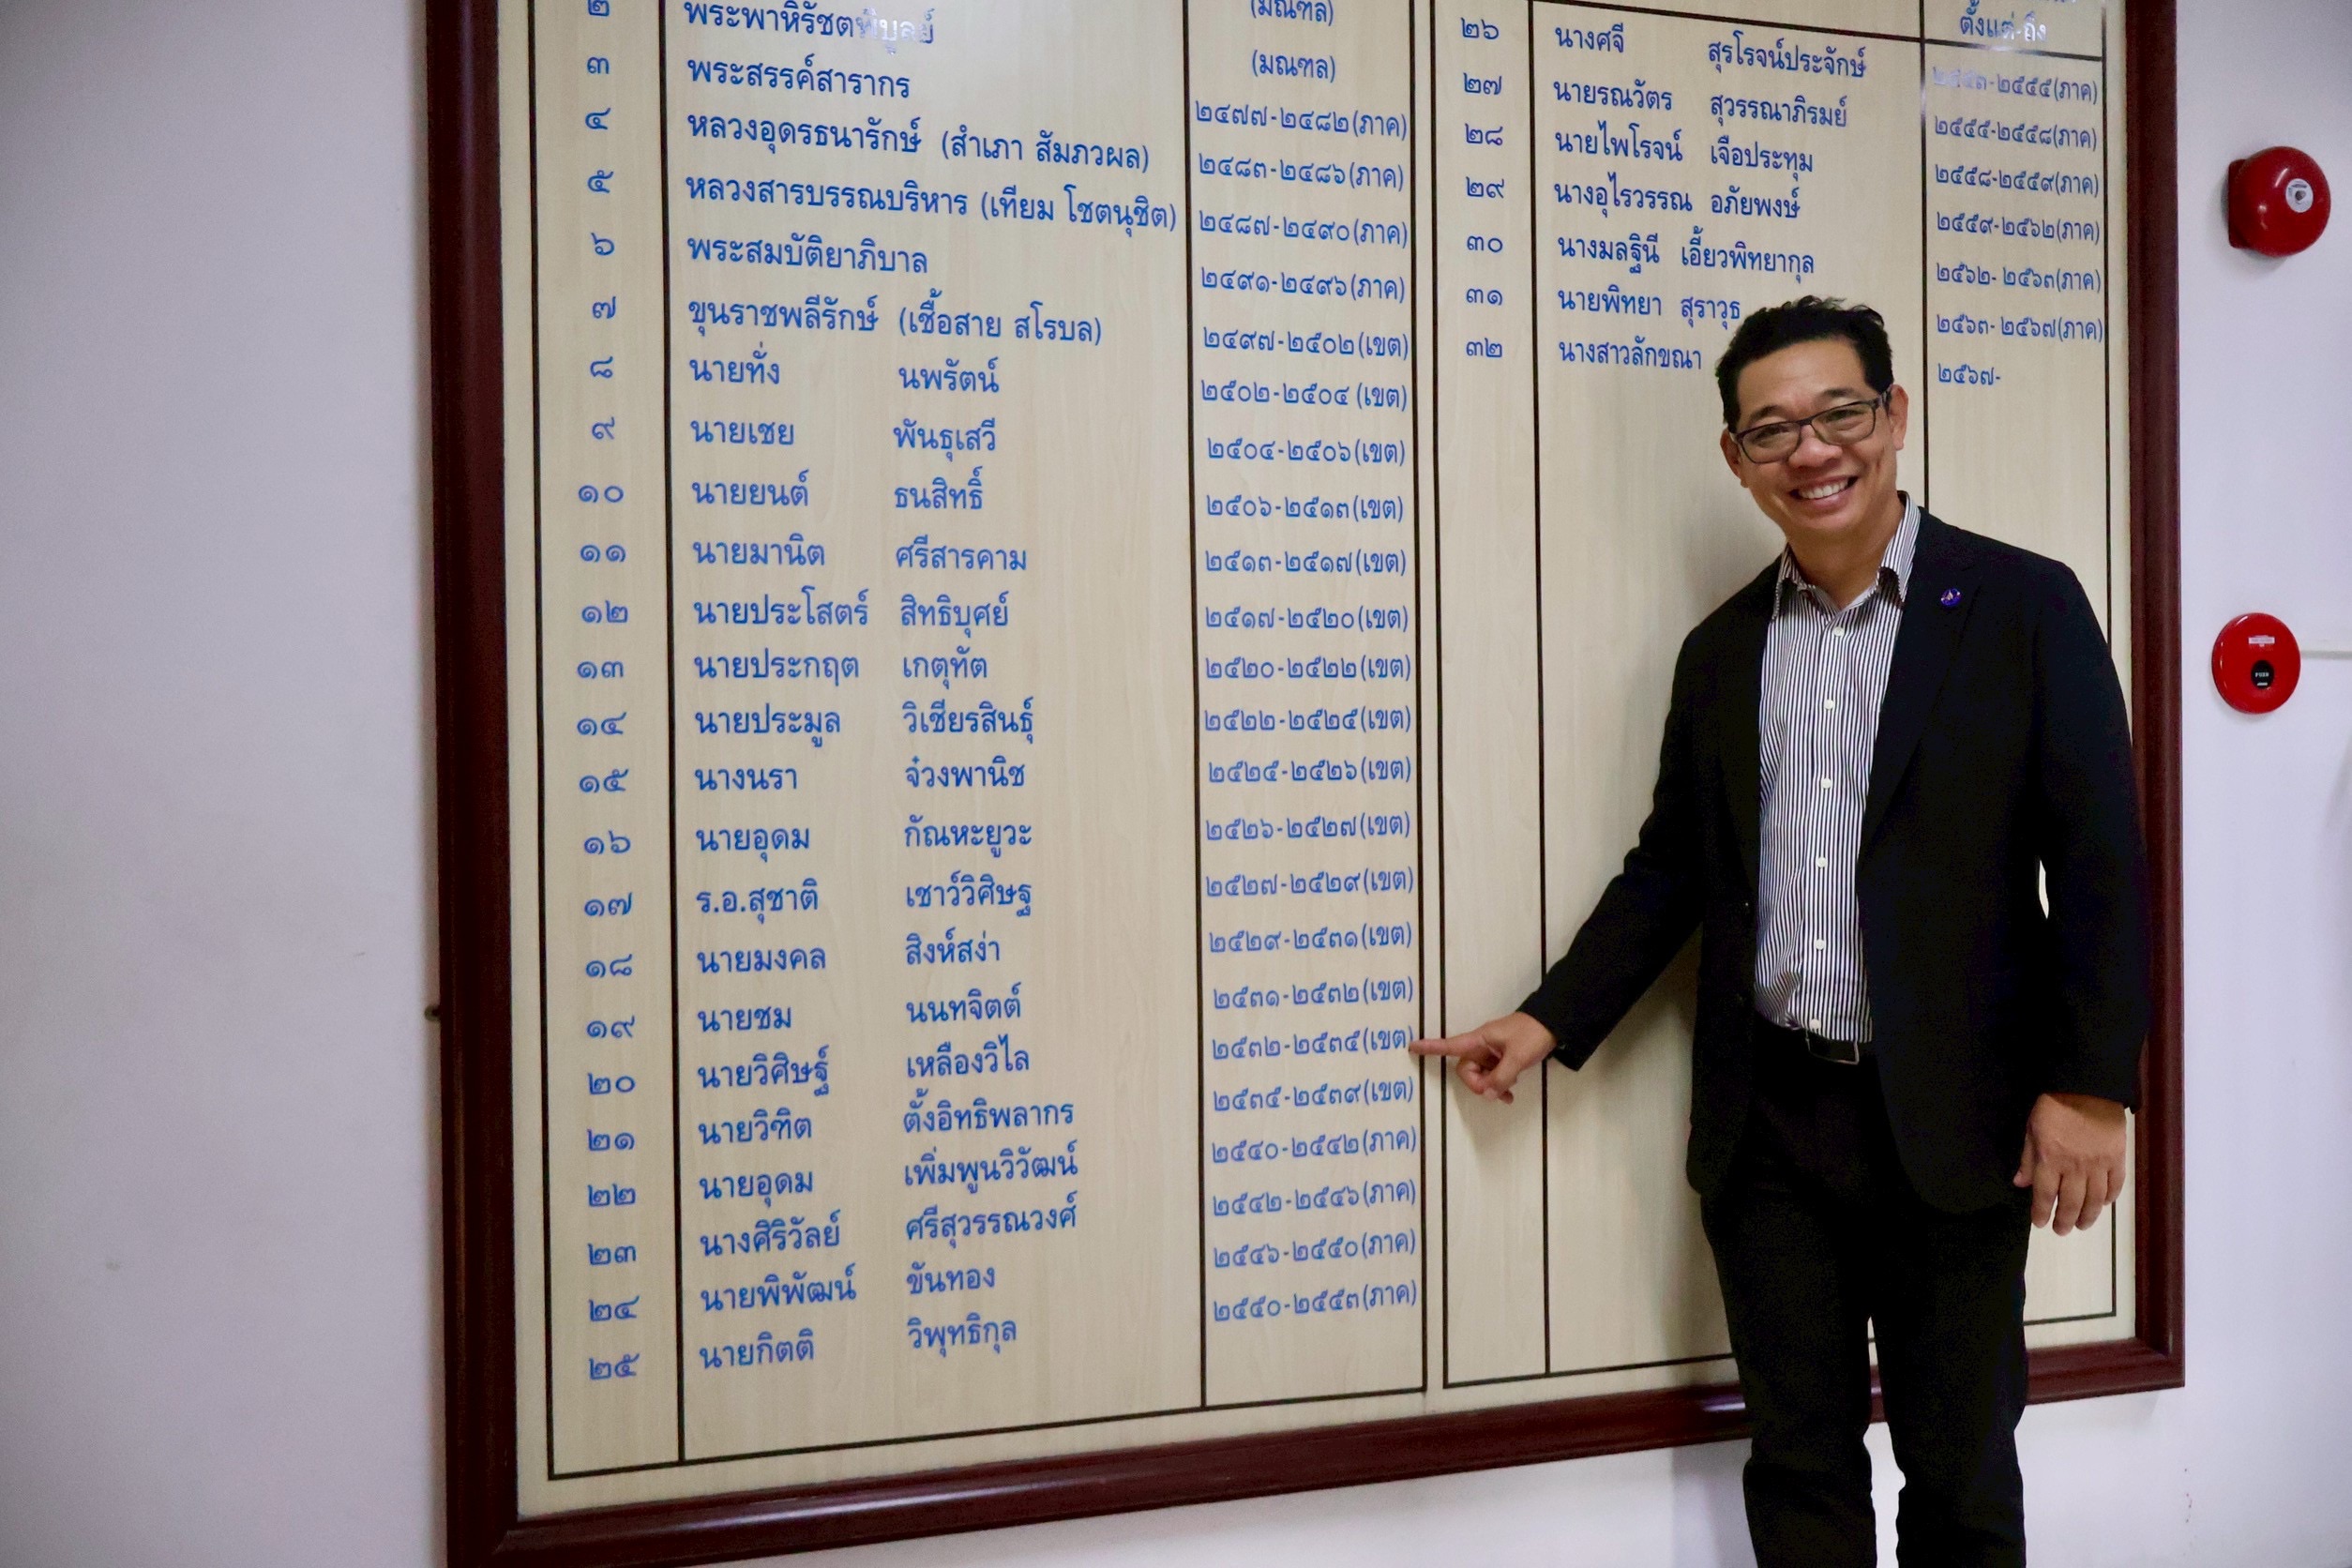 (มณฑล)
๒ พระพาหิรัชตพิบูลย์ (มณฑล)
๓ พระสรรค์สารากร ๒๔๗๗-๒๔๘๒(ภาค)
๔ หลวงอุดรธนารักษ์ (สำเภา สัมภวผล) ๒๔๘๓-๒๔๘๖(ภาค)
๕ หลวงสารบรรณบริหาร (เทียม โชตนุชิต) ๒๔๘๗-๒๔๙๐(ภาค)
๖ พระสมบัติยาภิบาล ๒๔๙๑-๒๔๙๖(ภาค)
๗ ขุนราชพลีรักษ์ (เชื้อสาย สโรบล) ๒๔๙๗-๒๕๐๒(เขต)
๘ นายทั่ง นพรัตน์ ๒๕๐๒-๒๕๐๔ (เขต)
๙ นายเชย พันธุเสวี ๒๕๐๔-๒๕๐๖(เขต)
๑๐ นายยนต์ ธนสิทธิ์ ๒๕๐๖-๒๕๑๓(เขต)
๑๑ นายมานิต ศรีสารคาม ๒๕๑๓-๒๕๑๗(เขต)
๑๒ นายประโสตร์ สิทธิบุศย์ ๒๕๑๗-๒๕๒๐(เขต)
๑๓ นายประกฤต เกตุทัต ๒๕๒๐-๒๕๒๒(เขต)
๑๔ นายประมูล วิเชียรสินธุ์ ๒๕๒๒-๒๕๒๕(เขต)
๑๕ นางนรา จ๋วงพานิช ๒๕๒๕-๒๕๒๖(เขต)
๑๖ นายอุดม กัณหะยูวะ ๒๕๒๖-๒๕๒๗(เขต)
๑๗ ร.อ.สุชาติ เชาว์วิศิษฐ ๒๕๒๗-๒๕๒๙(เขต)
๑๘ นายมงคล สิงห์สง่า ๒๕๒๙-๒๕๓๑(เขต)
๑๙ นายชม นนทจิตต์ ๒๕๓๑-๒๕๓๒(เขต)
๒๐ นายวิศิษฐ์ เหลืองวิไล ๒๕๓๒-๒๕๓๕(เขต)
๒๑ นายวิฑิต ตั้งอิทธิพลากร ๒๕๓๕-๒๕๓๙(เขต)
๒๒ นายอุดม เพิ่มพูนวิวัฒน์ ๒๕๔๐-๒๕๔๒(ภาค)
๒๓ นางศิริวัลย์ ศรีสุวรรณวงศ์ ๒๕๔๒-๒๕๔๖(ภาค)
๒๔ นายพิพัฒน์ ขันทอง ๒๕๔๖-๒๕๕๐(ภาค)
๒๕ นายกิตติ วิพุทธิกุล ๒๕๕๐-๒๕๕๓(ภาค)
ตั้งแต่-ถึง
๒๖ นางศจี สุรโรจน์ประจักษ์ ๒๕๕๓-๒๕๕๕(ภาค)
๒๗ นายรณวัตร สุวรรณาภิรมย์ ๒๕๕๕-๒๕๕๘(ภาค)
๒๘ นายไพโรจน์ เจือประทุม ๒๕๕๘-๒๕๕๙(ภาค)
๒๙ นางอุไรวรรณ อภัยพงษ์ ๒๕๕๙-๒๕๖๒(ภาค)
๓๐ นางมลฐินี เอี้ยวพิทยากุล ๒๕๖๒- ๒๕๖๓(ภาค)
๓๑ นายพิทยา สุราวุธ ๒๕๖๓- ๒๕๖๗(ภาค)
๓๒ นางสาวลักขณา ๒๕๖๗-